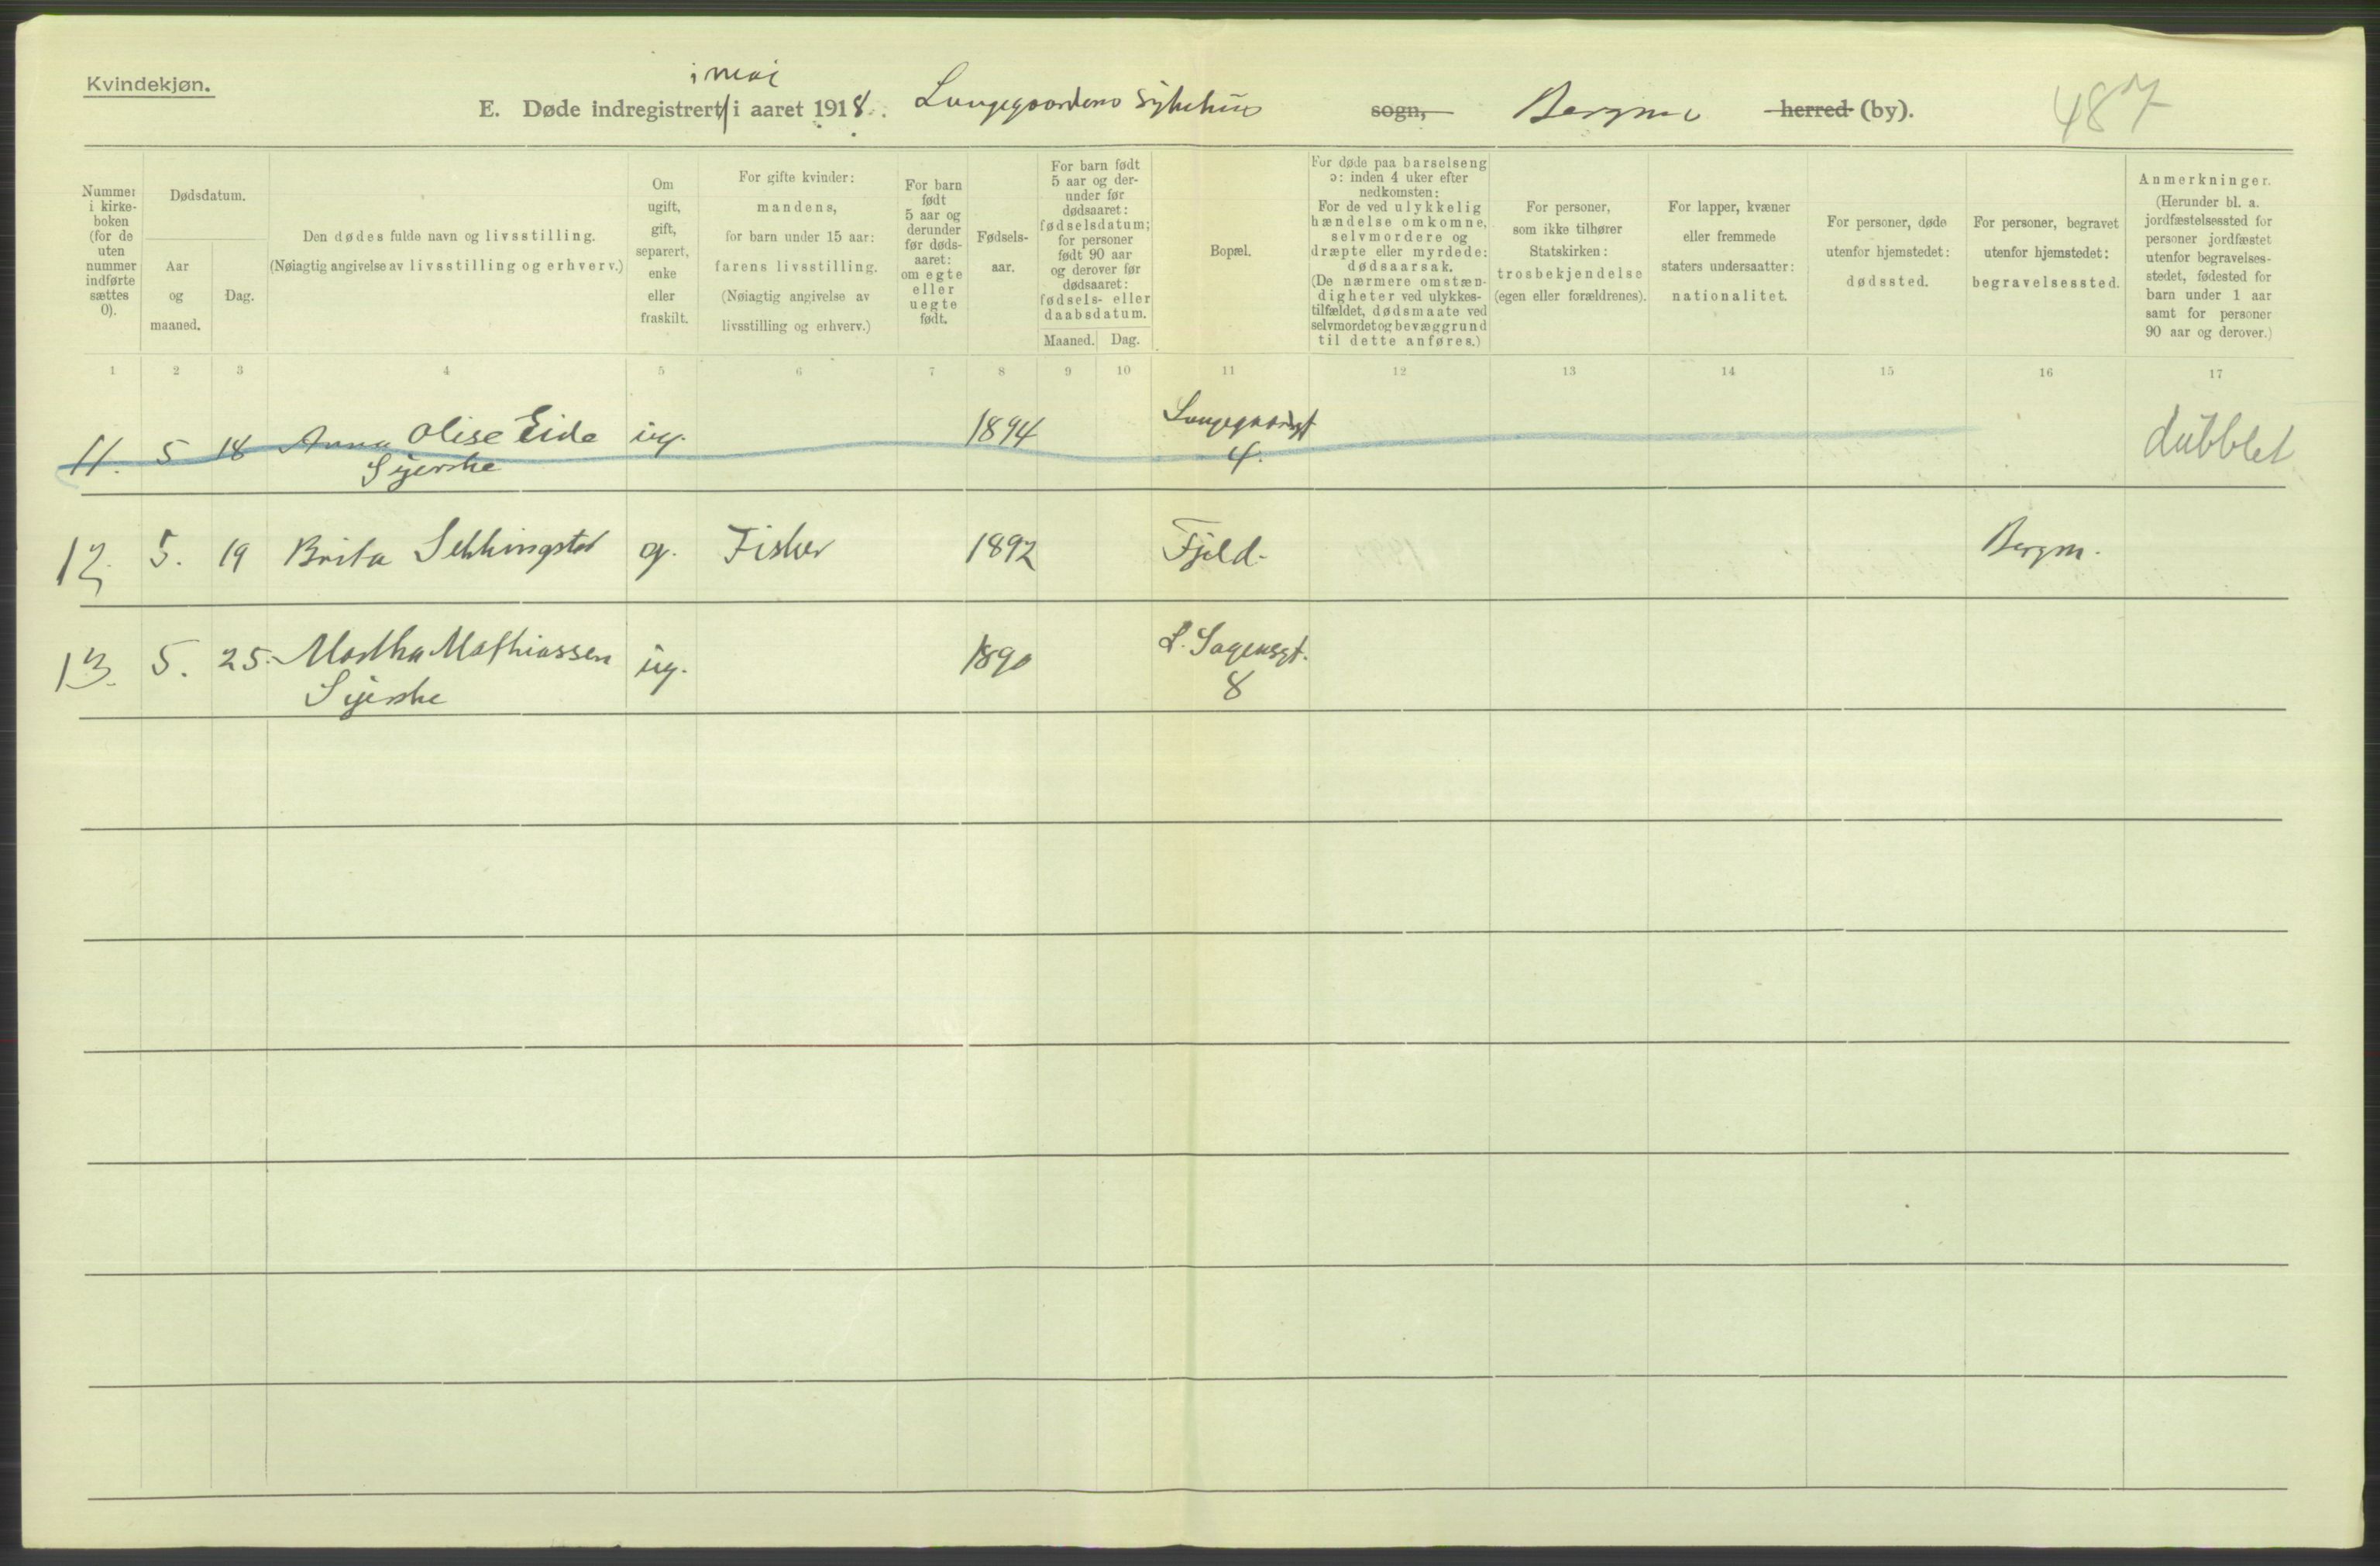 Kvindekjøn.
i mai
E. Døde indregistrert i aaret 1918. Lungegaardens sykehus sogn, Bergen herred (by). 487
Nummer
i kirke-
boken
(for de
uten
nummer
indførte
sættes
0).
Dødsdatum.
Aar
og
maaned.
Dag.
Den dødes fulde navn og livsstilling.
(Nøiagtig angivelse av livsstilling og erhverv.)
Om
ugift,
gift,
separert,
enke
eller
fraskilt.
For gifte kvinder:
mandens,
for barn under 15 aar:
farens livsstilling.
(Nøiagtig angivelse av
livsstilling og erhverv.)
For barn
født
5 aar og
derunder
før døds-
aaret:
om egte
eller
uegte
født.
Fødsels-
aar.
For barn født
5 aar og der-
under før
dødsaaret:
fødselsdatum;
for personer
født 90 aar
og derover før
dødsaaret:
fødsels- eller
daabsdatum.
Maaned. Dag.
Bopæl.
For døde paa barselseng
ɔ: inden 4 uker efter
nedkomsten:
For de ved ulykkelig
hændelse omkomne,
selvmordere og
dræpte eller myrdede:
dødsaarsak.
(De nærmere omstæn-
digheter ved ulykkes-
tilfældet, dødsmaate ved
selvmordet og bevæggrund
til dette anføres.)
For personer,
som ikke tilhører
Statskirken:
trosbekjendelse
(egen eller forældrenes).
For lapper, kvæner
eller fremmede
staters undersaatter:
nationalitet.
For personer, døde
utenfor hjemstedet:
dødssted.
For personer, begravet
utenfor hjemstedet:
begravelsessted.
Anmerkninger.
(Herunder bl. a.
jordfæstelsessted for
personer jordfæstet
utenfor begravelses-
stedet, fødested for
barn under 1 aar
samt for personer
90 aar og derover.)
1 2 3 4 5 6 7 8 9 10 11 12 13 14 15 16 17
11. 5 18 Anna Olise Eide ug. 1894 Lungegaardsgt dubblet
Syerske 4.
12. 5. 19 Brita Sekkingstad g. Fisker 1892 Fjeld. Bergen.
13. 5. 25. Martha Mathiassen ug. 1890 L. Sagensgt.
Syerske 8